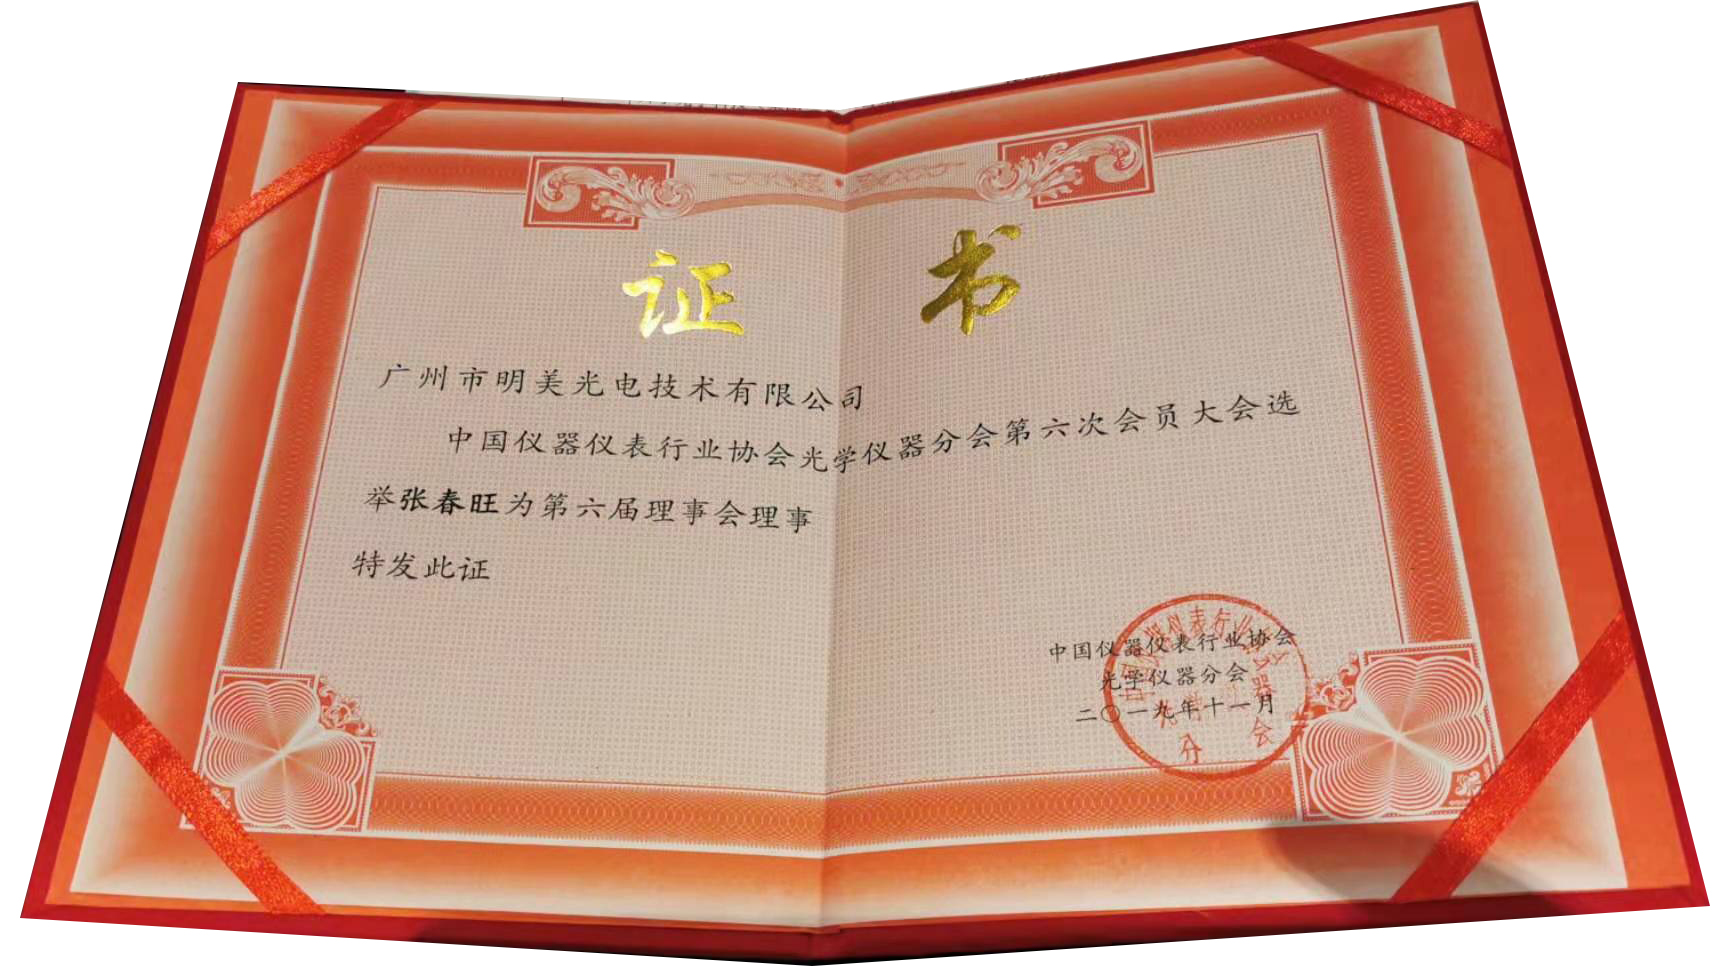 证书
广州市明美光电技术有限公司
中国仪器仪表行业协会光学仪器分会第六次会员大会选
举张春旺为第六届理事会理事
特发此证
中国仪器仪表行业协会
光学仪器分会
二〇一九年十一月